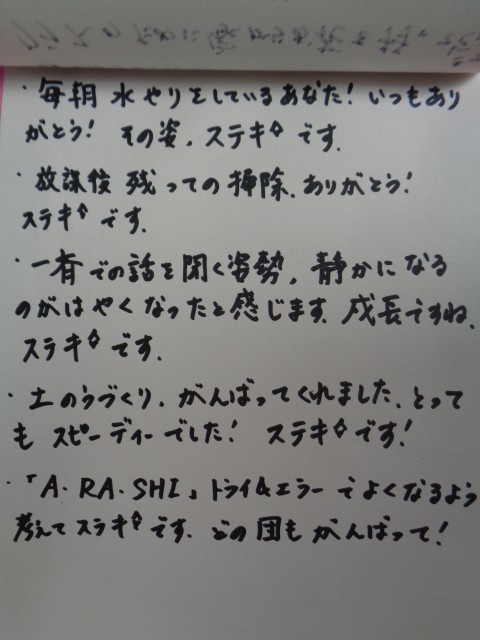 ・毎朝 水やりをしているあなた！いつもあり
がとう！ その姿、ステキ◇です。
・放課後 残っての掃除、ありがとう！
ステキ◇です。
・一斉での話を聞く姿勢、静かになる
のがはやくなったと感じます。成長ですね。
ステキ◇です。
・土のうづくり、がんばってくれました。とって
も スピーディーでした！ ステキ◇です！
・「A・RA・SHI」トライ&エラーでよくなるよう
考えてステキ◇です。どの団もがんばって！